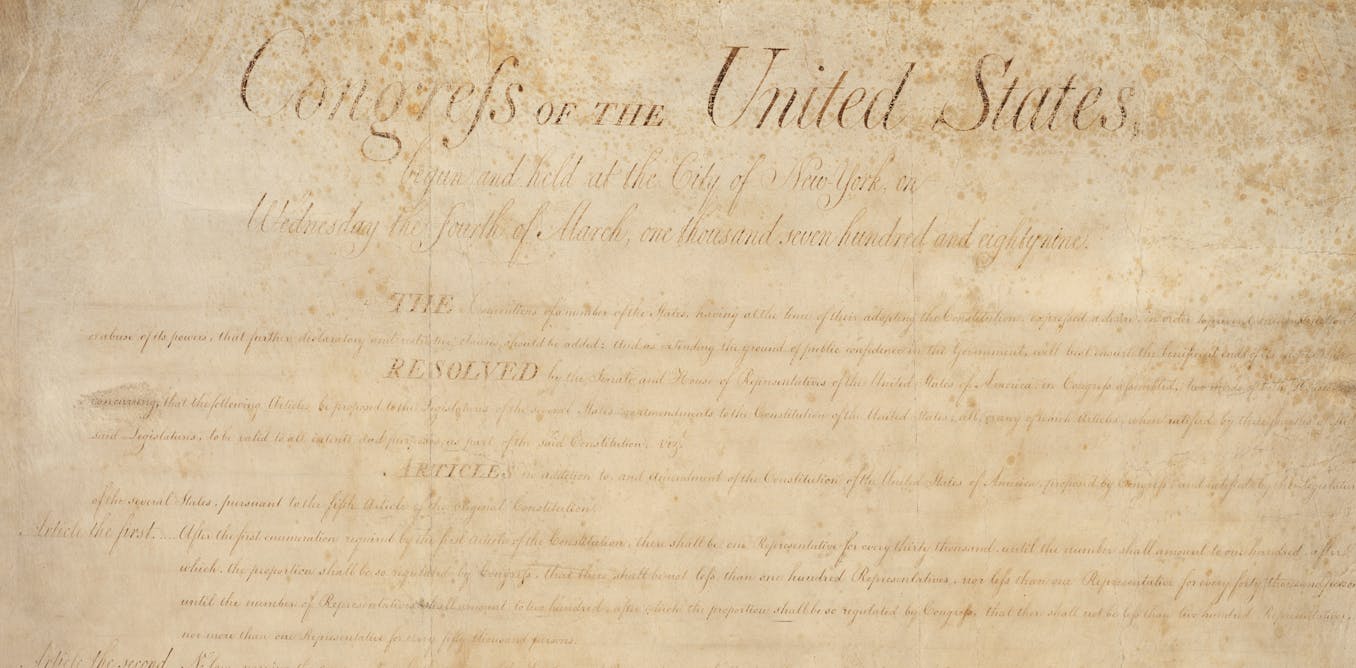 Congreſs OF THE United States,
begun and held at the City of New-York, on
Wednesday the fourth of March, one thousand seven hundred and eighty nine.
THE Conventions of a number of the States, having at the time of their adopting the Constitution, expressed a desire, in order to prevent misconstruction
or abuse of its powers, that further declaratory and restrictive clauses should be added: And as extending the ground of public confidence in the Government, will best ensure the beneficent ends of its
RESOLVED by the Senate and House of Representatives of the United States of America, in Congress assembled, two thirds of both Houses
concurring, that the following Articles be proposed to the Legislatures of the several States, as amendments to the Constitution of the United States, all, or any of which Articles, when ratified by three fourths of the
said Legislatures, to be valid to all intents and purposes, as part of the said Constitution, viz.
ARTICLES in addition to, and Amendment of the Constitution of the United States of America, proposed by Congreſs and ratified by the Legislatures
of the several States, pursuant to the fifth Article of the original Constitution.
Article the first.... After the first enumeration required by the first Article of the Constitution, there shall be one Representative for every thirty thousand, until the number shall amount to one hundred, after
which, the proportion shall be so regulated by Congreſs, that there shall be not leſs than one hundred Representatives, nor leſs than one Representative for every forty thousand persons,
until the number of Representatives shall amount to two hundred, after which the proportion shall be so regulated by Congreſs, that there shall not be leſs than two hundred Representatives,
nor more than one Representative for every fifty thousand persons.
Article the second